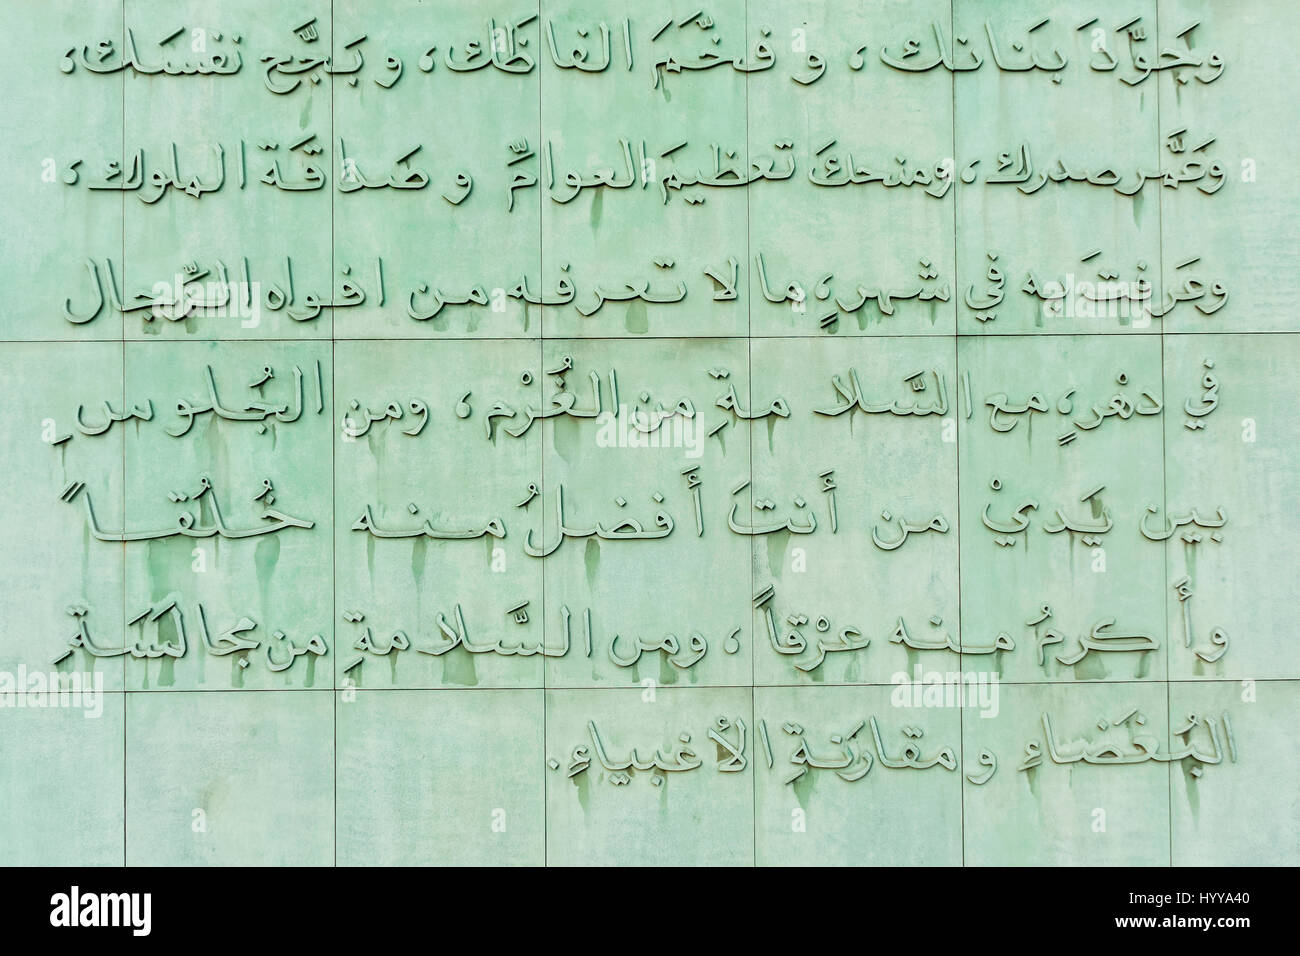 وجَوَّدَ بَنانك، وفخَّمَ الفاظَك، وبَجَّح نفسَك،
وعَمَّر صدرك، ومنحكَ تعظيمَ العوامِّ وصَداقَة الملوك،
وعَرفتَ به في شهرٍ، ما لا تعرفه من افواه الرِّجال
في دهْرٍ، مع السَّلامةِ من الغُرْم، ومن الجُلوسِ
بين يَديْ من أنتَ أفضلُ منه خُلُقاً
وأكرمُ منه عرْقاً، ومن السَّلامةِ من مجالسَةِ
البُغَضاءِ ومقارَنةِ الأغبياءِ.
alamy
alamy stock photo
HYYA40
www.alamy.com